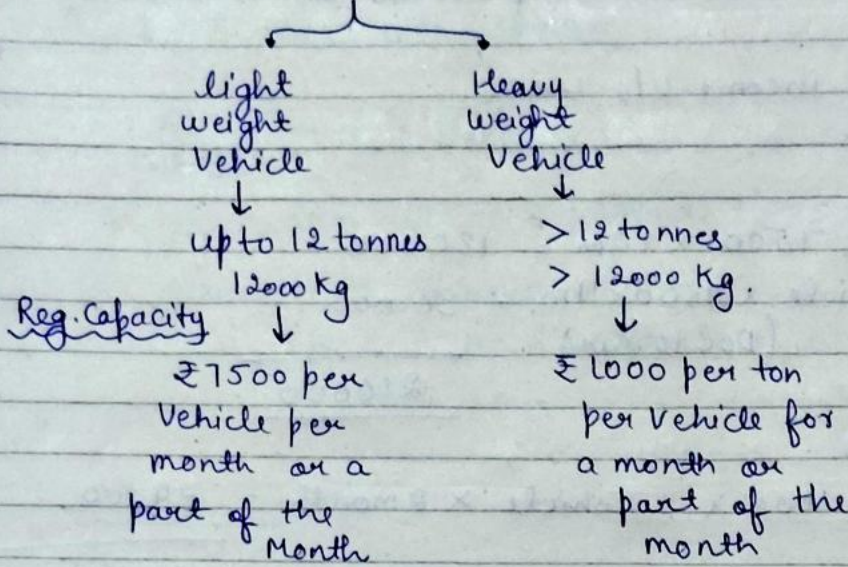 light
weight
Vehicle
↓
up to 12 tonnes
12000 kg
Reg. Capacity
↓
₹7500 per
Vehicle per
month or a
part of the
Month
Heavy
weight
Vehicle
↓
> 12 tonnes
> 12000 kg.
↓
₹1000 per ton
per vehicle for
a month or
part of the
month